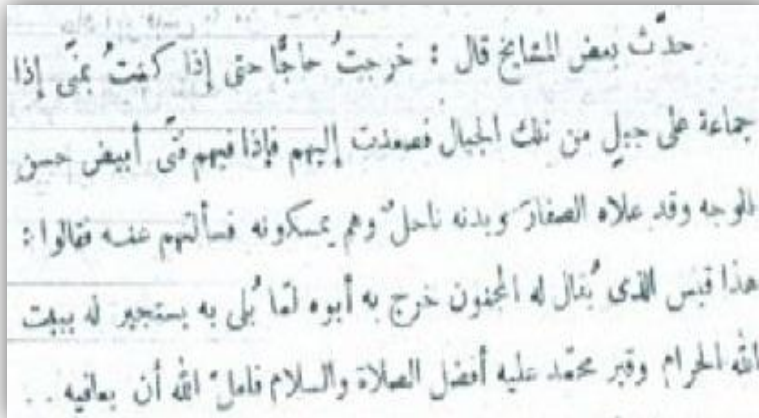 حدَّث بعض المشايخ قال : خرجتُ حاجًّا حتى إذا كنتُ بمنًى إذا
جماعة على جبلٍ من تلك الجبال فصعدت إليهم فإذا فيهم فتًى أبيض حسن
الوجه وقد علاه الصفار وبدنه ناحلٌ وهم يمسكونه فسألتهم عنه فقالوا :
هذا قيس الذى يُقال له المجنون خرج به أبوه لمّا بُلى به يستجير له ببيت
الله الحرام وقبر محمّد عليه أفضل الصلاة والسلام فلعلّ الله أن يعافيه ..